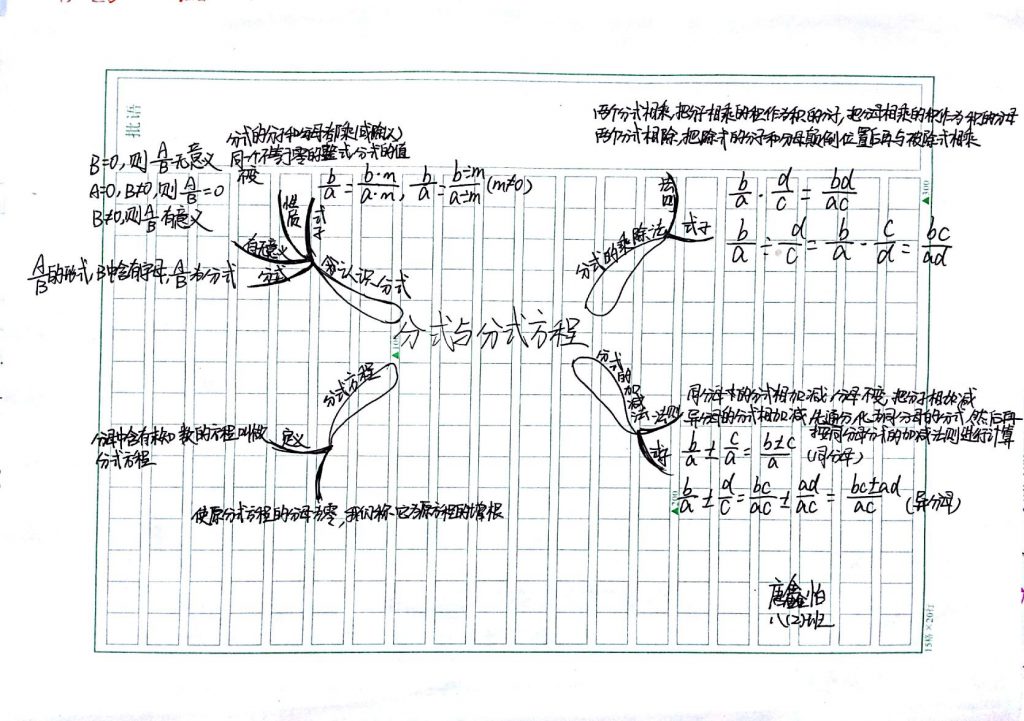 批语
分式的分子和分母都乘(或除以)
同一个不等于零的整式,分式的值
不变
B=0,则 A/B 无意义
A=0,B≠0,则 A/B =0
B≠0,则 A/B 有意义
b/a = b·m/a·m, b/a = b÷m/a÷m (m≠0)
性质
式子
有无意义
分式
A/B的形式,B中含有字母,A/B为分式
认识分式
两个分式相乘,把分子相乘的积作为积的分子,把分母相乘的积作为积的分母
两个分式相除,把除式的分子和分母颠倒位置后再与被除式相乘
法则
式子
分式的乘除法
b/a · d/c = bd/ac
b/a ÷ d/c = b/a · c/d = bc/ad
▲300
分式与分式方程
分式方程
定义
分母中含有未知数的方程叫做
分式方程
使原分式方程的分母为零,我们称它为原方程的增根
分式的加减法
法则
式子
同分母的分式相加减,分母不变,把分子相加减
异分母的分式相加减,先通分,化为同分母的分式,然后再
按同分母分式的加减法则进行计算
b/a ± c/a = b±c/a (同分母)
b/a ± d/c = bc/ac ± ad/ac = bc±ad/ac (异分母)
▲200
唐鑫怡
八(2)班
15格×20行